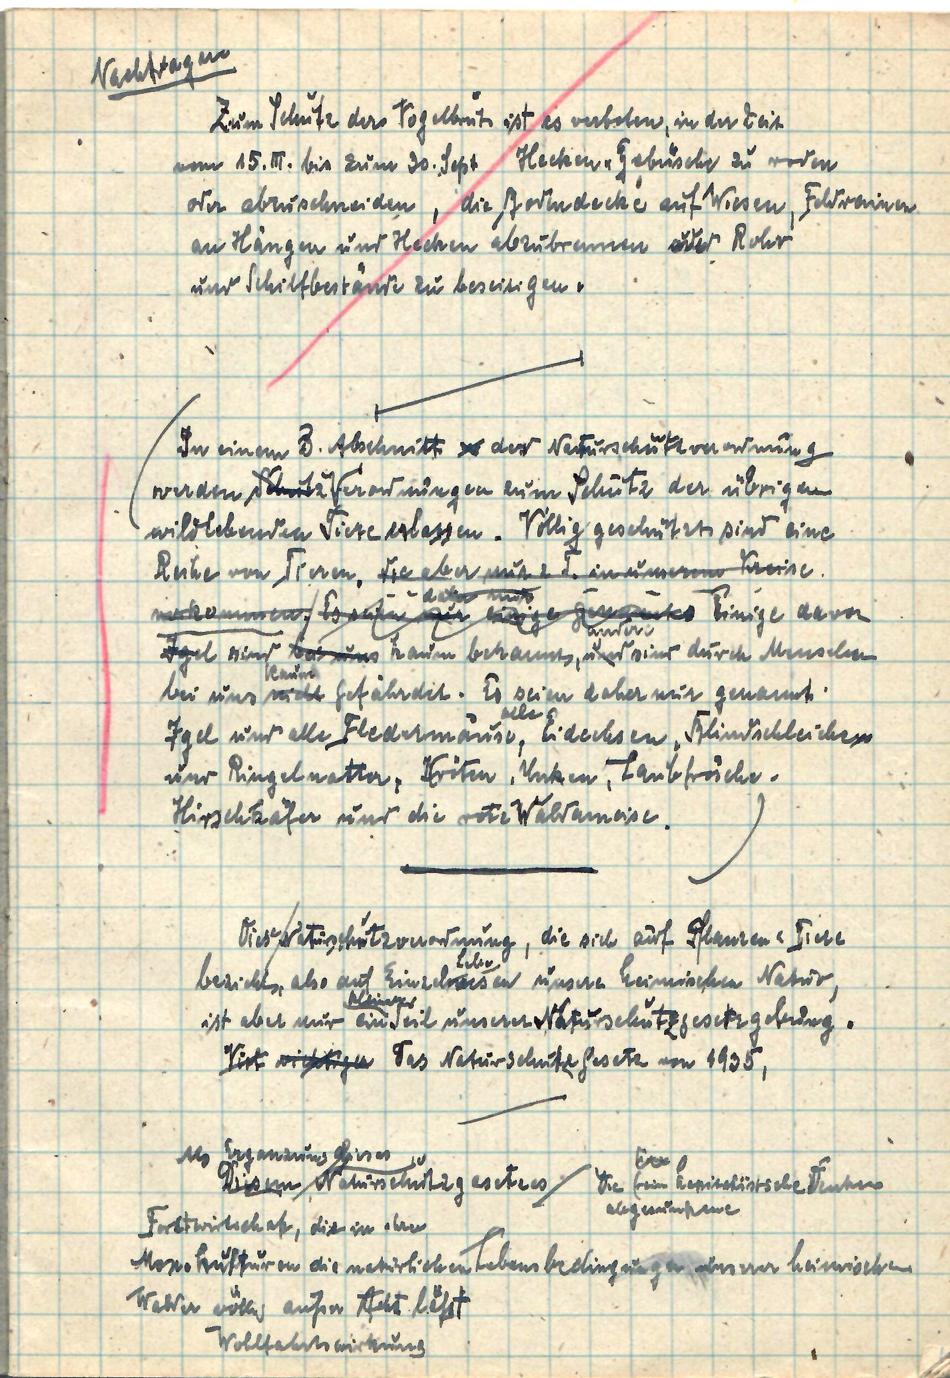 Nachfragen
Zum Schutz der Vogelbrut ist es verboten, in der Zeit
vom 15. III. bis zum 30. Sept Hecken u. Gebüsche zu roden
oder abzuschneiden, die Bodendecke auf Wiesen, Feldrainen
an Hängen und Hecken abzubrennen oder Rohr
und Schilfbestände zu beseitigen.
In einem 3. Abschnitt der Naturschutzverordnung
werden Schutz Verordnungen zum Schutz der übrigen
wildlebenden Tiere erlassen. Völlig geschützt sind eine
Reihe von Tieren, die aber nur z. T. in unserem Kreise
vorkommen. Es seien nur einige genannt Einige davon
Igel sind bei uns kaum bekannt, und andere sind durch Menschen
bei uns nicht kaum gefährdet. Es seien daher nur genannt:
Igel und alle Fledermäuse, alle Eidechsen, Blindschleichen
und Ringelnatter, Kröten, Unken, Laubfrösche.
Hirschkäfer und die rote Waldameise.
Diese Naturschutzverordnung, die sich auf Pflanzen u. Tiere
bezieht, also auf Einzel unserer heimischen Natur,
ist aber nur ein kleiner Teil unserer Naturschutzgesetzgebung.
wichtiger Das Naturschutzgesetz von 1935,
Als Ergänzung dieses
Diesem Naturschutzgesetzes
Die rein kapitalistische Denken
Forstwirtschaft, die in ihren
Monokulturen die natürlichen Lebensbedingungen unserer heimischen
Wälder völlig außer Acht läßt
Wohlfahrtswirkung